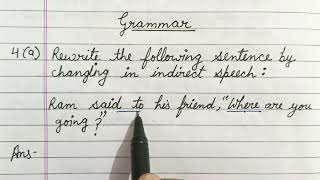 Grammar
4(a) Rewrite the following sentence by
changing in indirect speech:
Ram said to his friend, "Where are you
going?"
Ans-